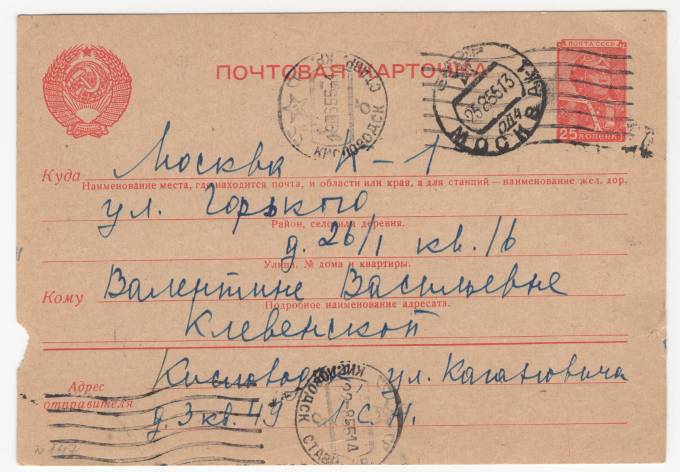 ПОЧТОВАЯ КАРТОЧКА
ПОЧТА СССР
25 КОПЕЕК
КИСЛОВОДСК СТАВР. КР.
МОСКВА
2585513
Куда Москва К-1
Наименование места, где находится почта, и области или края, а для станций — наименование жел. дор.
ул. Горького
Район, село или деревня.
д. 26/1 кв. 16
Улица, № дома и квартиры.
Кому Валентине Васильевне
Подробное наименование адресата.
Клевенской
Адрес отправителя
Кисловодск ул. Кагановича
д. 3 кв. 49
КИСЛОВОДСК СТАВР.
N 147